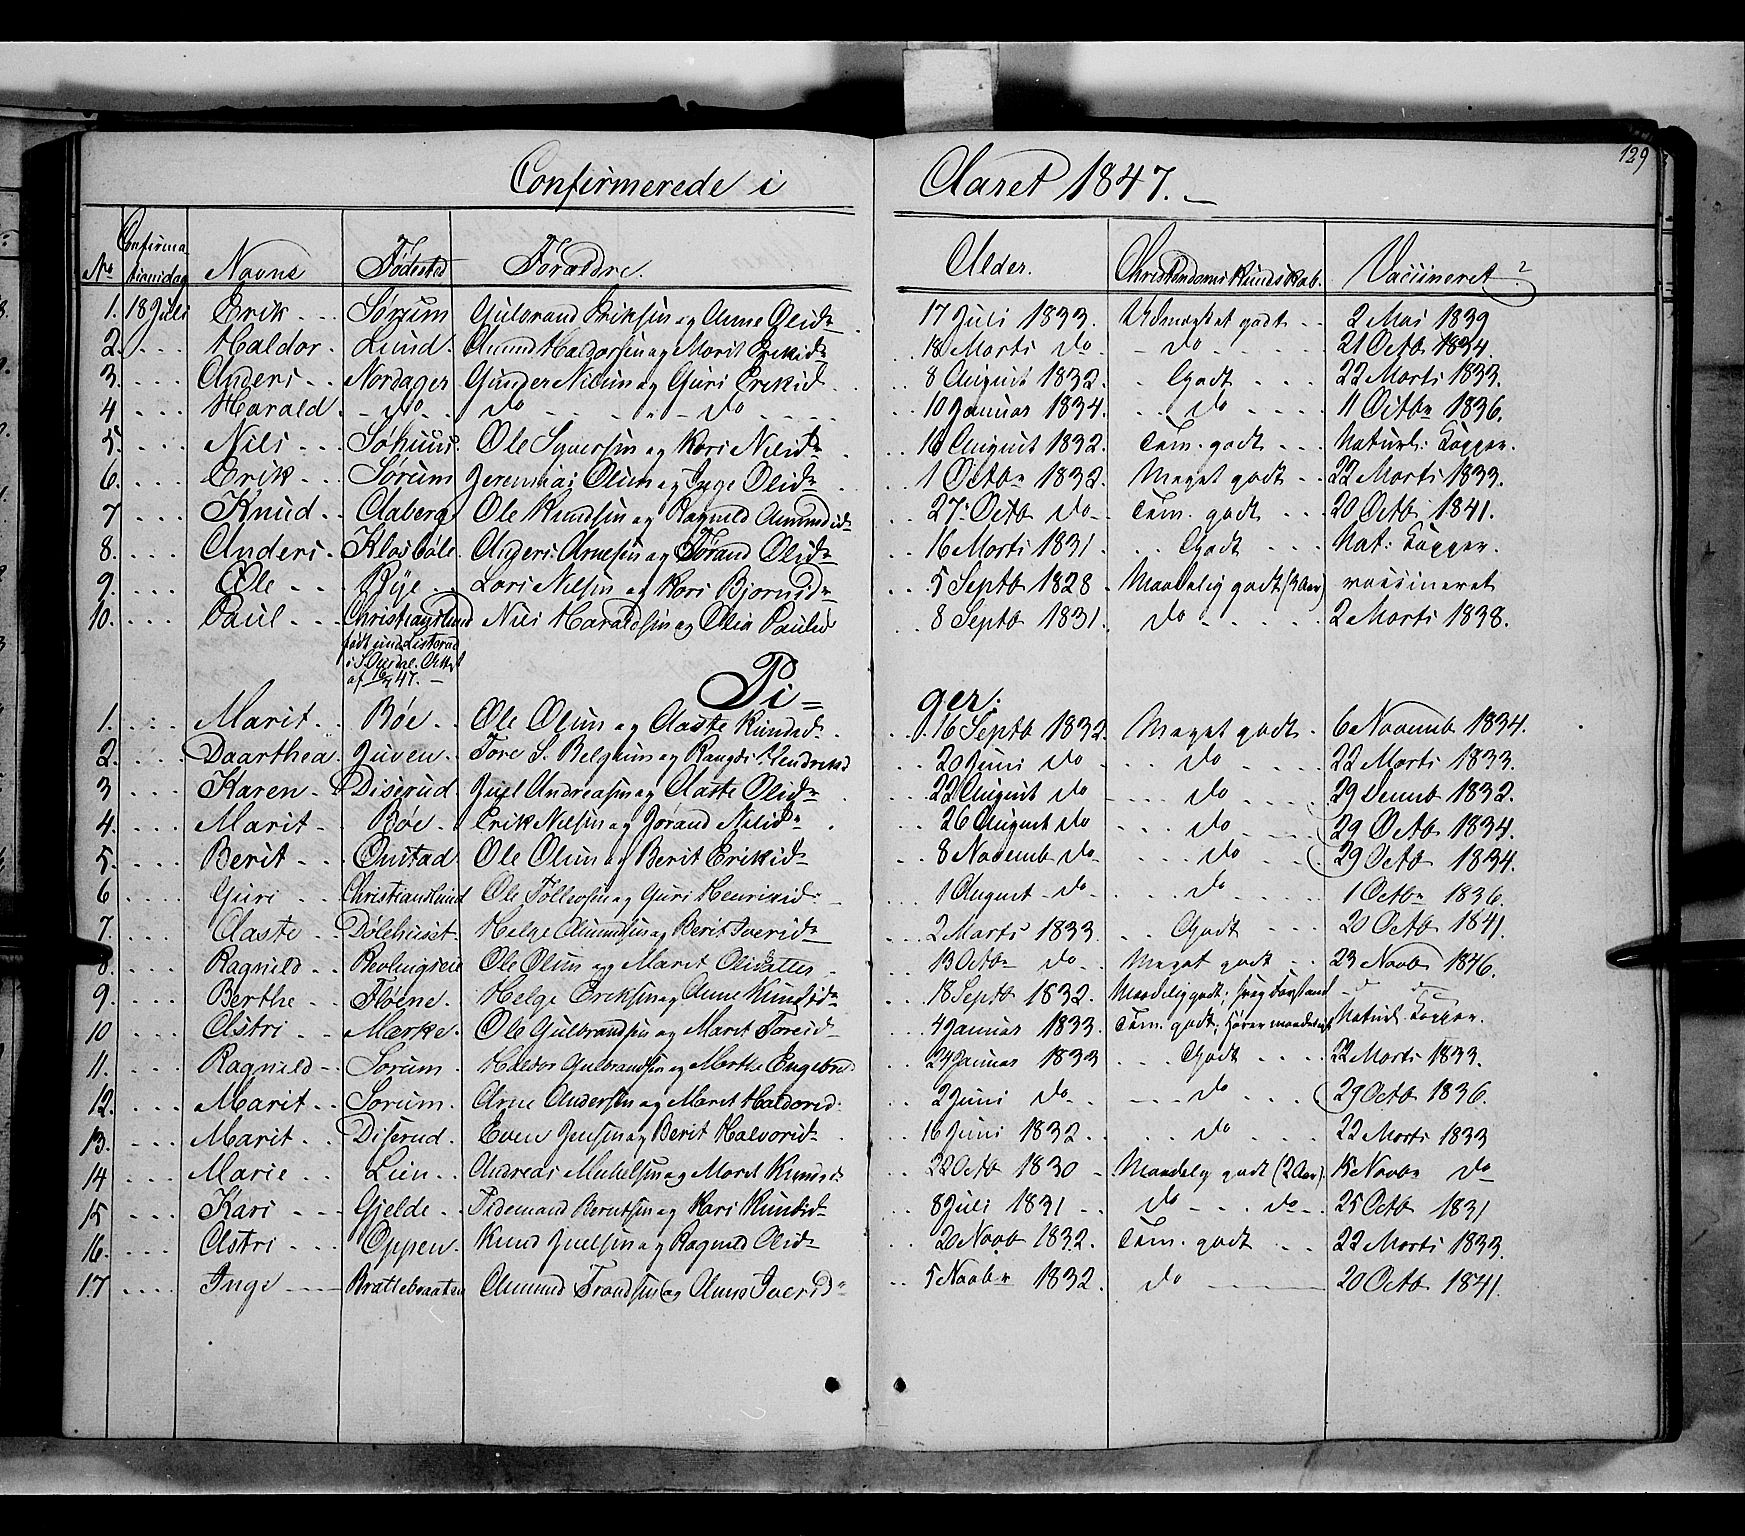 129
Confirmerede i Aaret 1847.
No Confirmationsdag Navne Fødested Forældre. Alder. Christendoms Kundskab. Vaccineret?
1. 18 Juli Erik Sørum Gulbrand Eriksen og Anne Olsdr 17 Juli 1833. Udmærket godt 2 Mai 1839
2. Haldor Lund Amund Haldorsen og Marit Eriksdr 18 Marts do do 21 Octb 1834.
3. Anders Nordager Gunder Nilsen og Guri Eriksd 8 August 1832. Godt 22 Marts 1833.
4 Harald do do do 10 Januar 1834. do 11 Octbr 1836.
5. Nils Søhuus Ole Syversen og Kari Nilsdr 16 August 1832. Tem. godt Naturl: Kopper.
6. Erik Sørum Jeremias Olsen og Inge Olsdr 1 Octbr 1832. Meget godt 22 Marts 1833.
7 Knud Aaberg Ole Knudsen og Ragnild Amundsdr 27 Octb do Tem. godt 20 Octb 1841.
8. Anders Klosbøle Anders Arnesen og Jørand Olsdr 16 Marts 1831. Godt Nat: Kopper.
9. Ole Rye Lars Nilsen og Kari Bjørnsdr 5 Septb 1828 Maadelig godt (3 Aar) vaccineret
10. Paul Christianslund Nils Haraldsen og Olia Paulsd 8 Septb 1831. do 2 Marts 1838.
født
i S. Aurdal. Attest
af 47.
Piger:
1. Marit Bøe Ole Olsen og Aaste Knudsd. 16 Septb 1832 Meget godt 6 Novemb 1834.
2. Daarthea Juven Tore S. og Hendriksd 20 Juni do do 22 Marts 1833.
3 Karen Diserud Juel Andreasen og Aaste Olsdr 22 August do do 29 Decmb 1832.
4. Marit Bøe Erik Nilsen og Jørand Nilsdr 26 August do do 29 Octb 1834.
5. Berit Onstad Ole Olsen og Berit Eriksdr 8 Novemb do do 29 Octb 1834.
6 Guri Christianslund Ole Tollevsen og Guri Henriksd 1 August do do 1 Octbr 1836.
7. Aaste Dølehuset Helge Amundsen og Berit Iversdr 2 Marts 1833 Godt 20 Octb 1841.
8. Ragnild Ole Olsen og Marit Olsdatter 13 Octbr do Meget godt 23 Novb 1846.
9. Berthe Helge Eriksen og Anne Knudsdr 18 Septb 1832. Maadelig godt; svag Forstand
10 Astri Mærke Ole Gulbrandsen og Marit Toresdr 4 Januar 1833. Tem. godt; hører maadeligt Naturl. Kopper.
11. Ragnild Sørum. Haldor Gulbrandsen og Marthe Engebrd 24 Januar 1833 Godt 22 Marts 1833.
12. Marit Sørum. Arne Andersen og Marit Haldorsd. 2 Juni do do 29 Octb 1836.
13. Marit Diserud. Even Jensen og Berit Halvorsdr 16 Juni 1832 do 22 Marts 1833
14 Marie Lien Andreas Mikkelsen og Marit Knudsdr 22 Octb 1830 Maadelig godt (2 Aar) 15 Novbr do
15 Kari Gjelde Tidemand Berntsen og Kari Knudsdr 8 Juli 1831 do do 25 Octb 1831
16. Astri Oppen. Knud Juelsen og Ragnild Olsdr 20 Novb 1832. Tem. godt 22 Marts 1833.
17 Inge Brattebraaten Amund Trondsen og Anne Iversdr 5 Novbr 1832. do 20 Octb 1841.